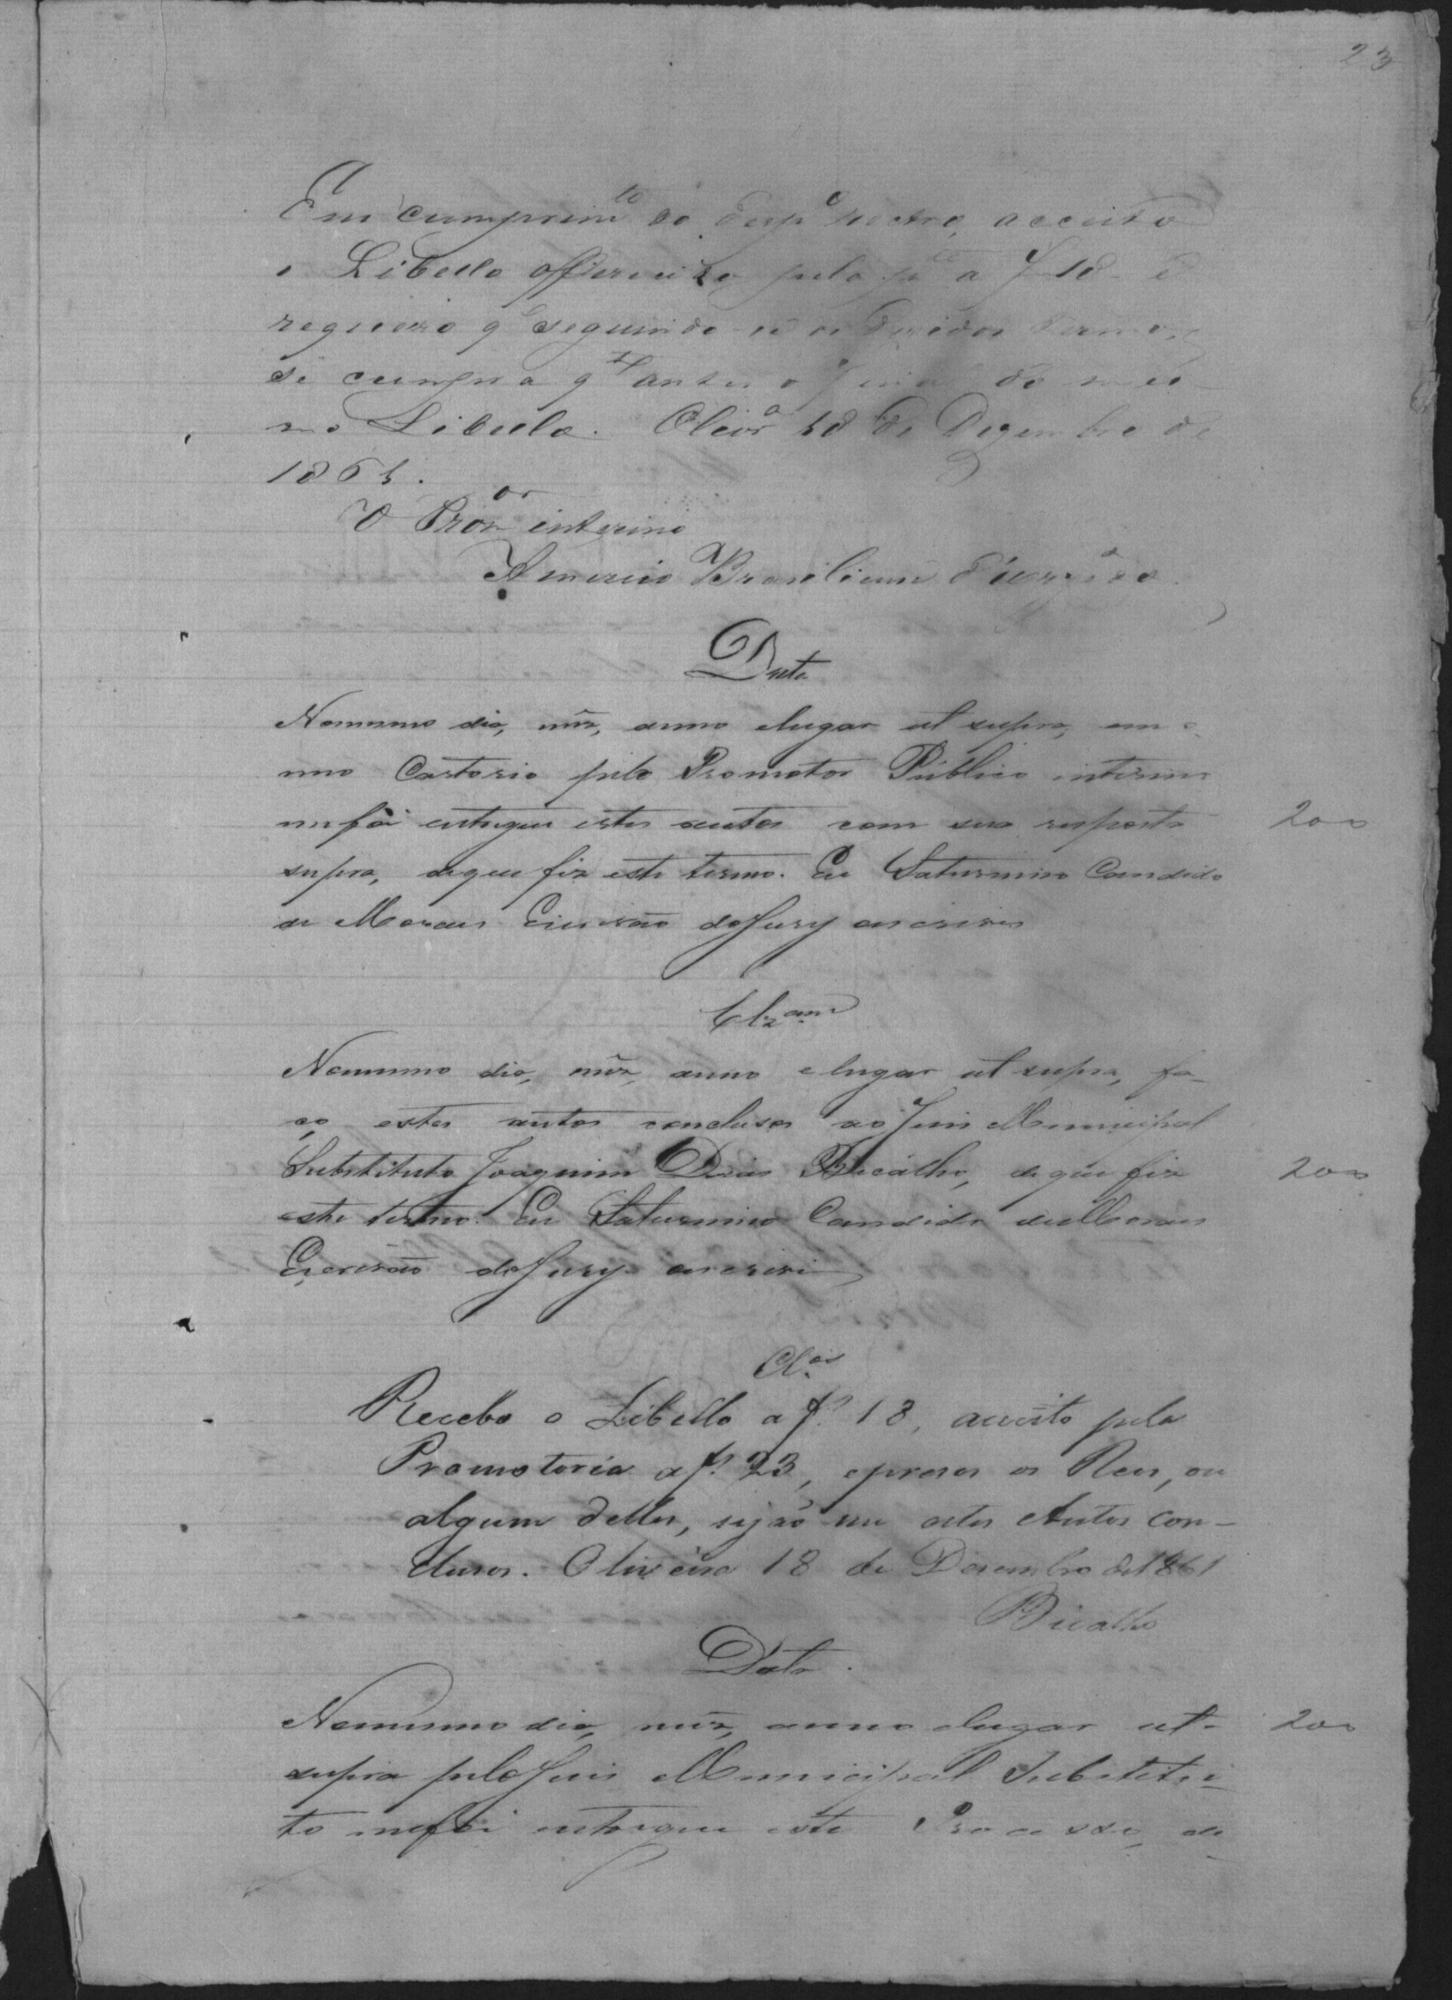 23
Em cumprim.to do desp.o retro, acceito
o Libello offerecido pela p.te a f 18 e
requeiro q.e seguindo-se os devidos termos,
se cumpra q.to antes o do mes-
mo Libello. Oliv.a 18 de Dezembro de
1861.
O Prom.or interino
Americo Brasiliano
Data
Nomesmo dia, mêz, anno elugar ut supra, em
meo Cartorio pelo Promotor Publico interino
mefoi entregue estes autos com sua resposta
200
supra, deque fiz este termo. Eu Saturnino Candido
de Moraes Escrivão doJury oescrevi
Cl.am
Nomesmo dia, mêz, anno elugar ut supra, fa-
ço estes autos conclusos aoJuis Municipal
Substituto Joaquim Dias Bicalho, deque fiz
200
este termo. Eu Saturnino Candido deMoraes
Escrivão doJury oescrevi
Cl.os
Recebo o Libello a f. 18, aceito pela
Promotoria a f. 23, epresos os Reos, ou
algum delles, sejão me estes Autos con-
clusos. Oliveira 18 de Desembro de 1861
Bicalho
Data.
Nomesmo dia, mêz, anno elugar ut-
200
supra peloJuis Municipal Substitu-
to mefoi entregue este Processo, de